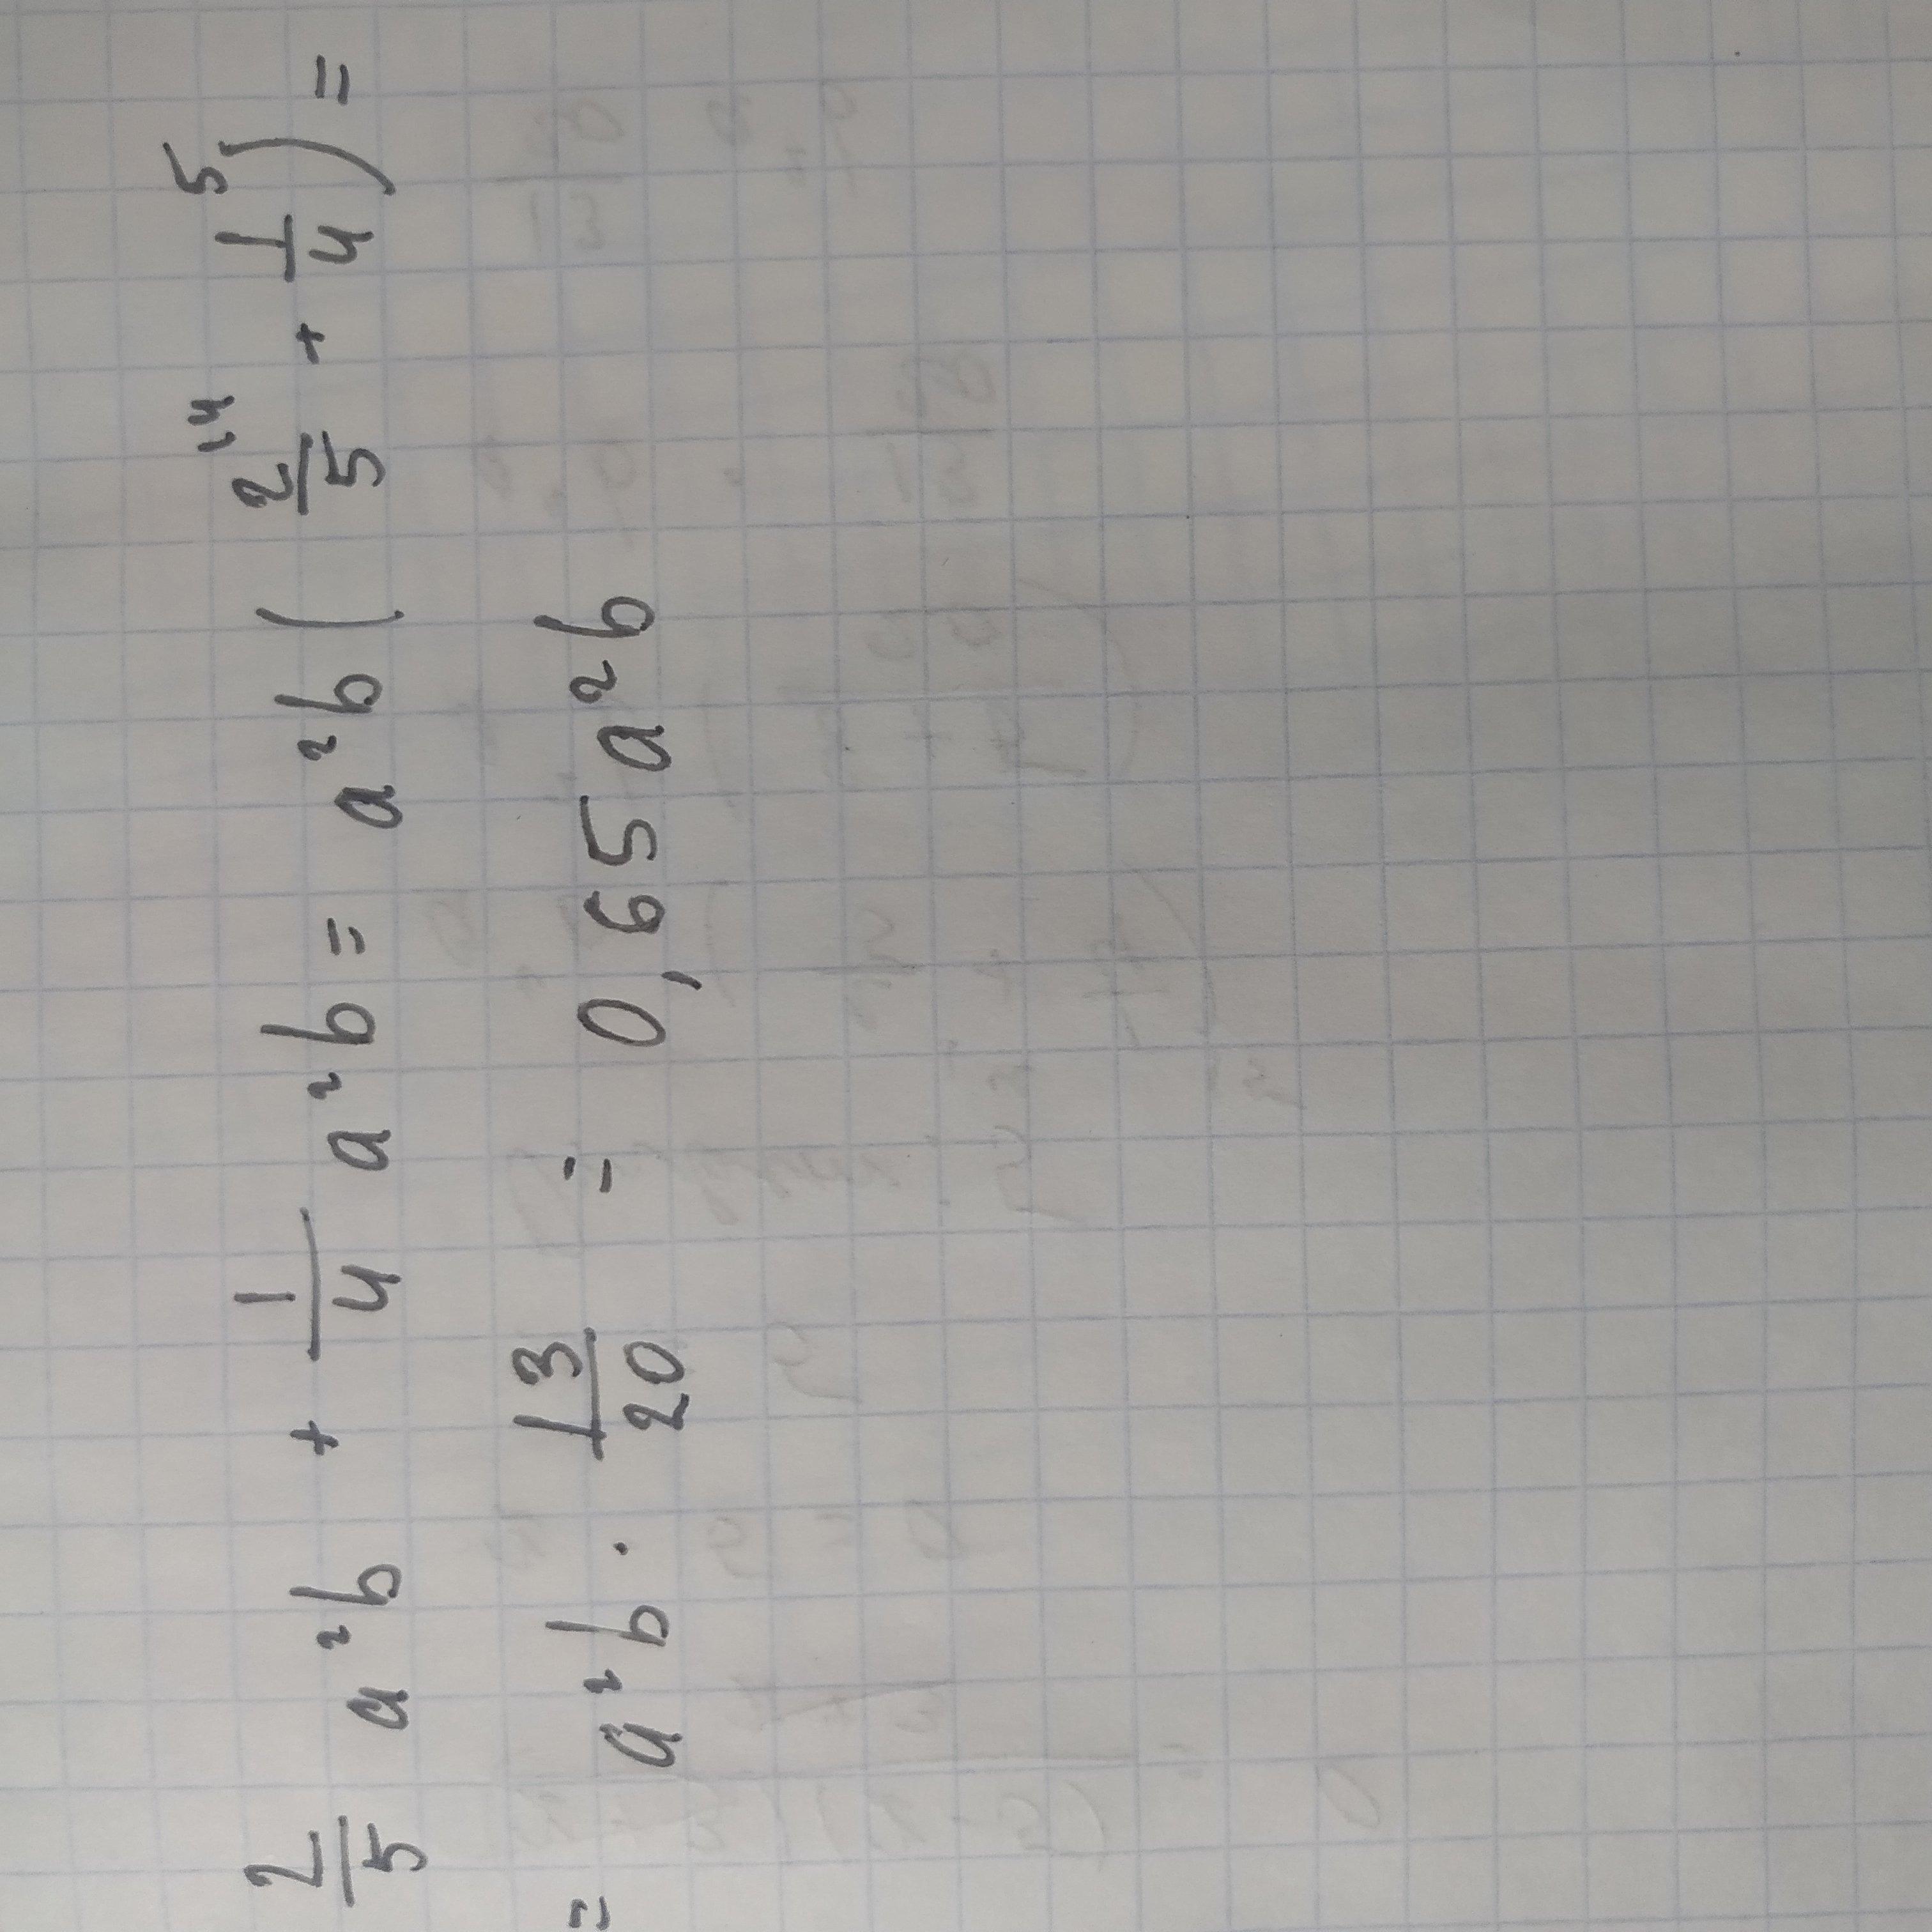 2/5 a²b + 1/4 a²b = a²b ( 2/5 ^4 + 1/4 ^5 ) =
= a²b · 13/20 = 0,65 a²b